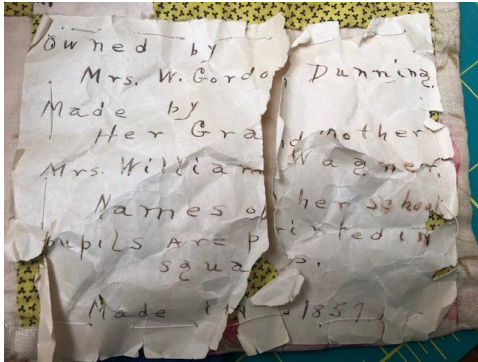 Owned by
Mrs. W. Gordo Dunning.
Made by
Her Gra d mother
Mrs. William Wagner.
Names of her school
pupils are printed in
squa s.
Made in 1857.